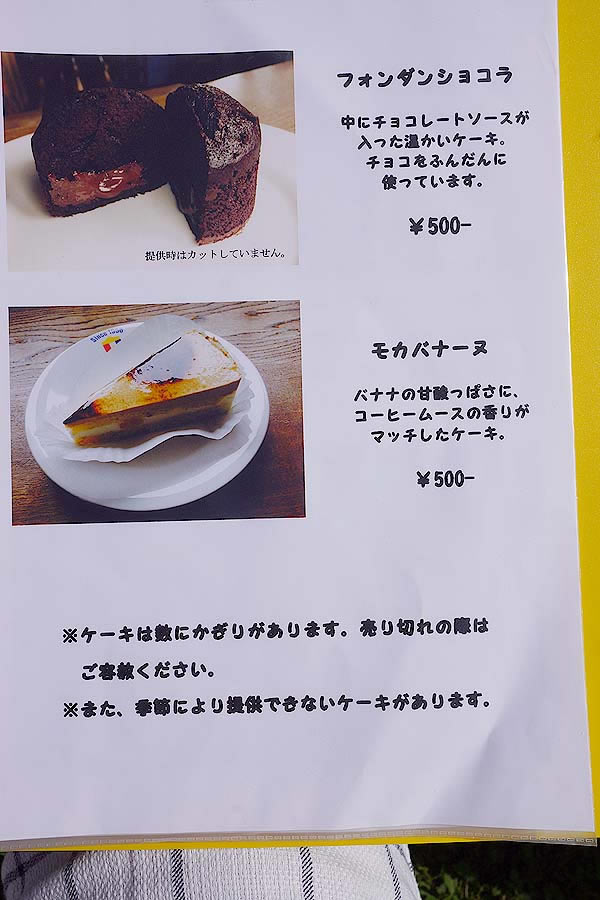 フォンダンショコラ
中にチョコレートソースが
入った温かいケーキ。
チョコをふんだんに
使っています。
￥500−
提供時はカットしていません。
モカバナーヌ
バナナの甘酸っぱさに、
コーヒームースの香りが
マッチしたケーキ。
￥500−
※ケーキは数にかぎりがあります。売り切れの際は
ご容赦ください。
※また、季節により提供できないケーキがあります。